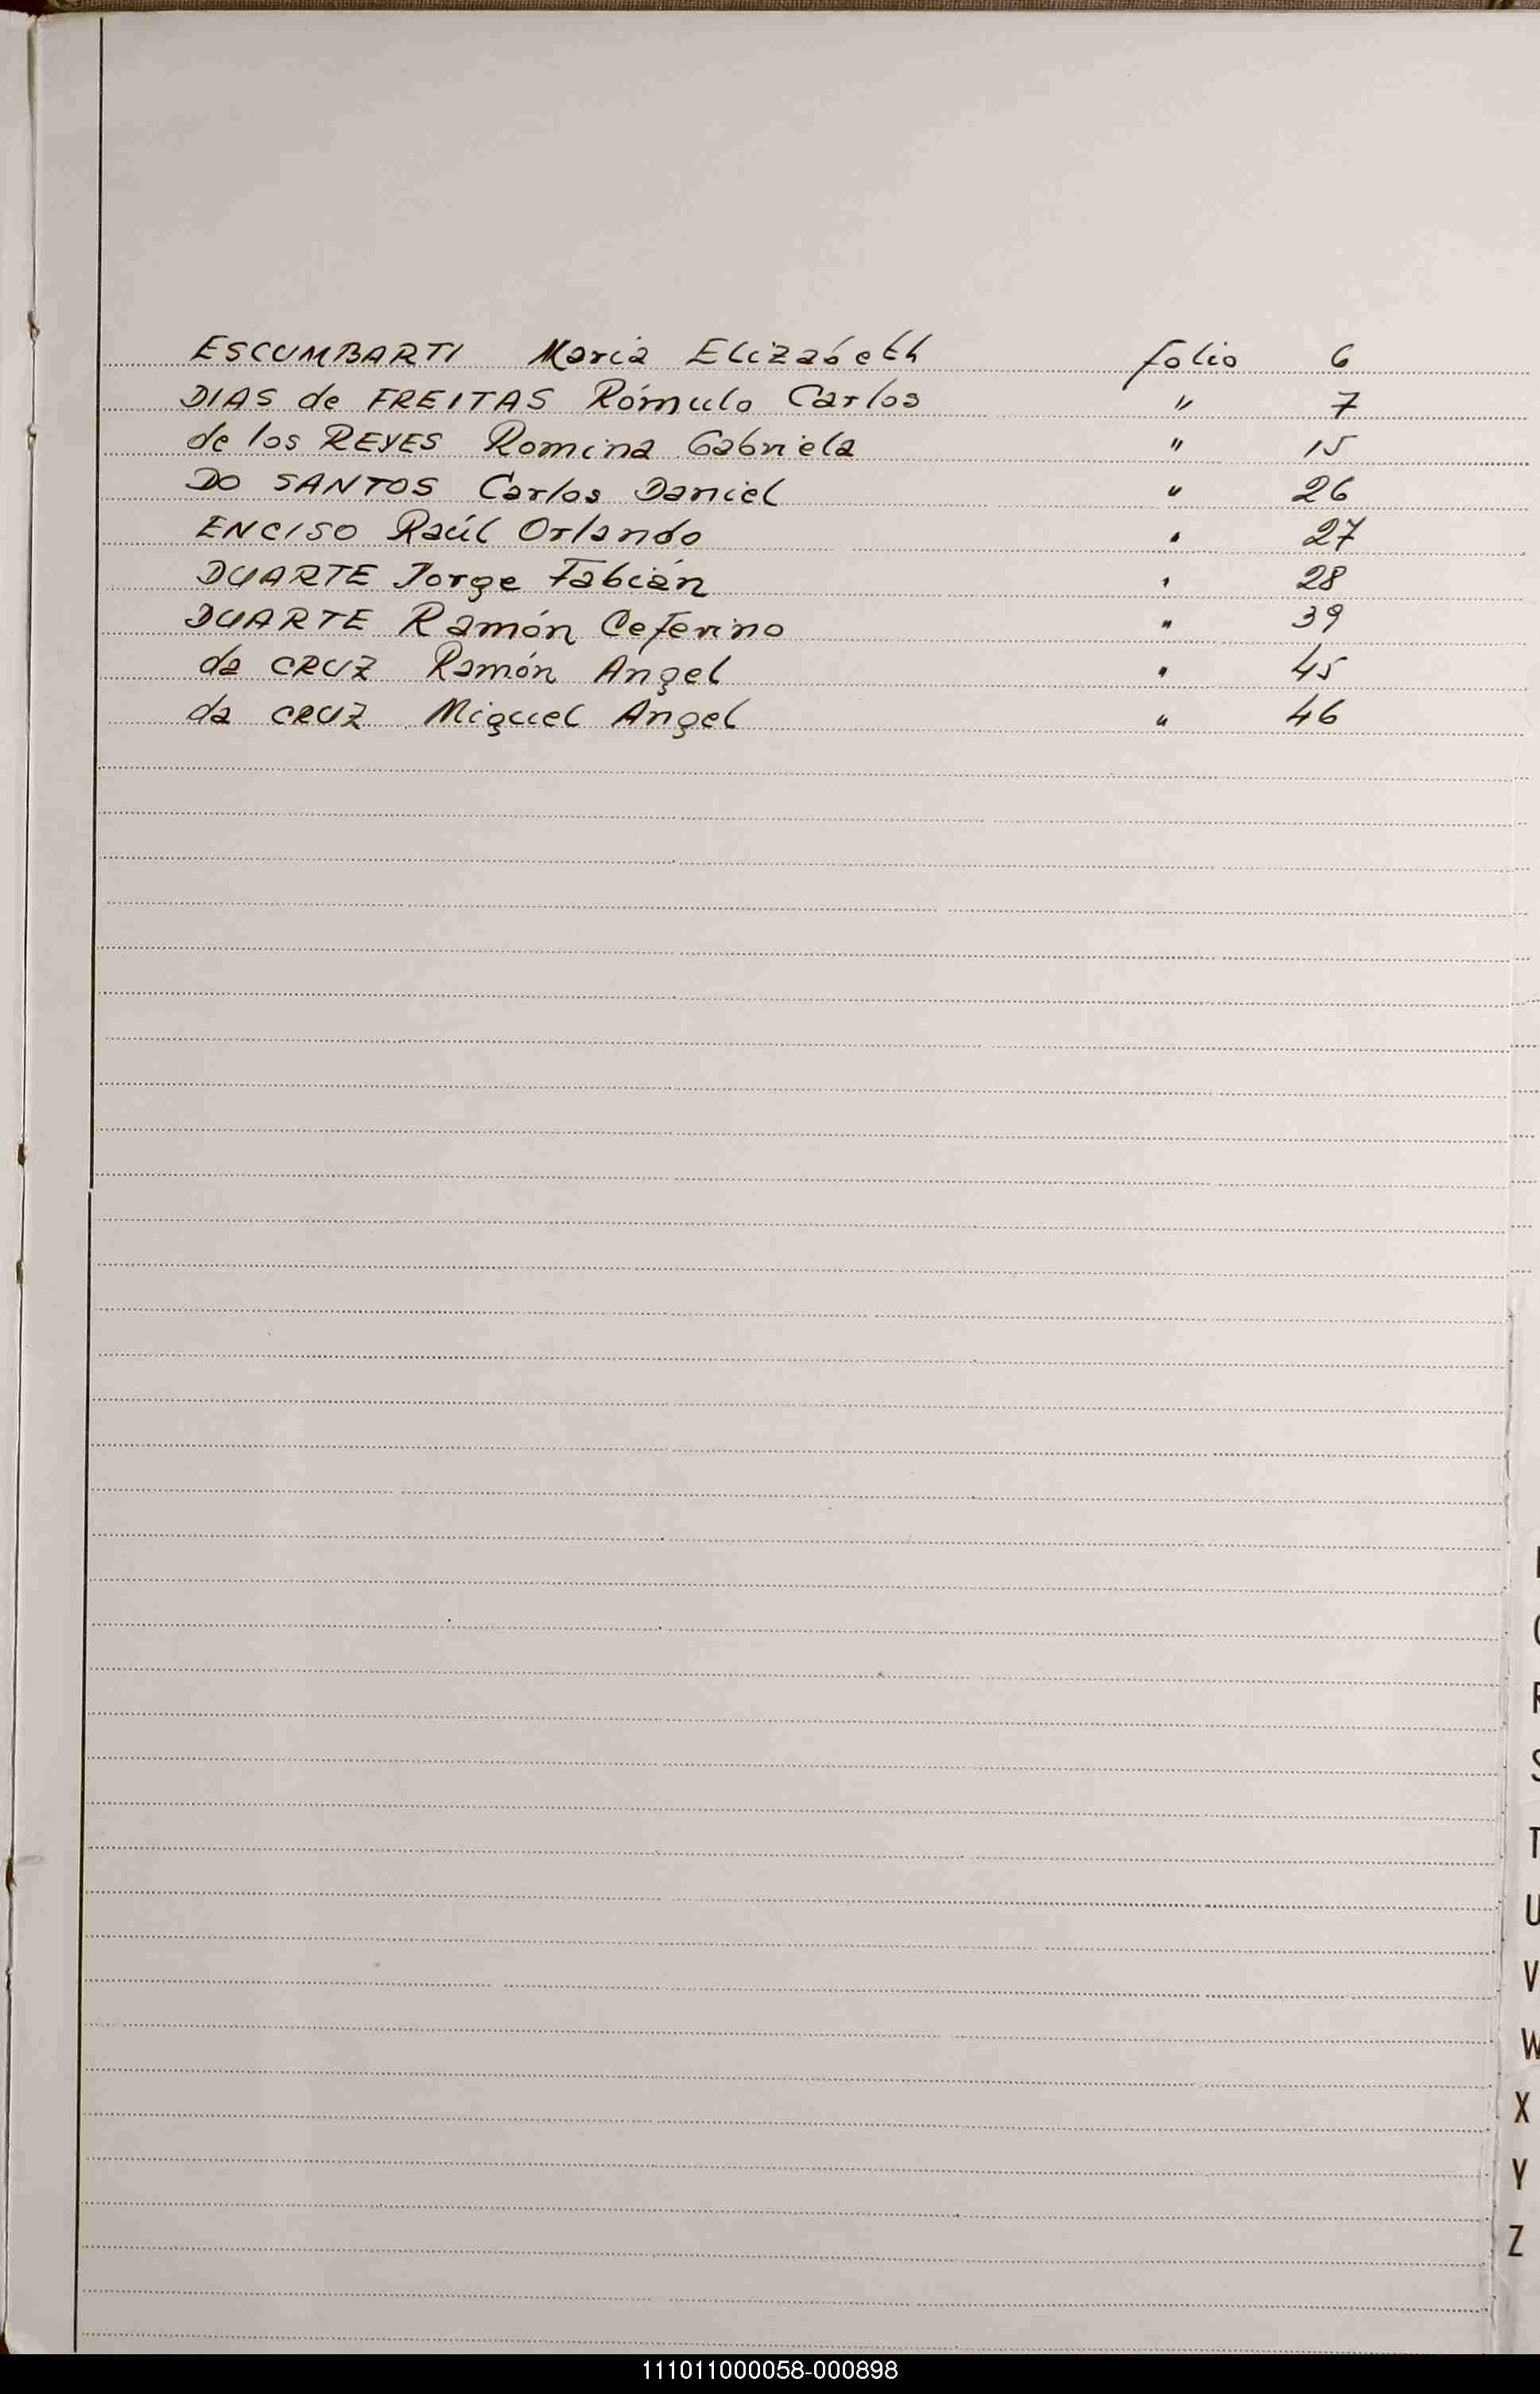 ESCUMBARTI Maria Elizabeth folio 6
DIAS de FREITAS Rómulo Carlos " 7
de los REYES Romina Gabriela " 15
DO SANTOS Carlos Daniel " 26
ENCISO Raúl Orlando " 27
DUARTE Jorge Fabián " 28
DUARTE Ramón Ceferino " 39
da CRUZ Ramón Angel " 45
da CRUZ Miguel Angel " 46
S
T
U
V
W
X
Y
Z
111011000058-000898